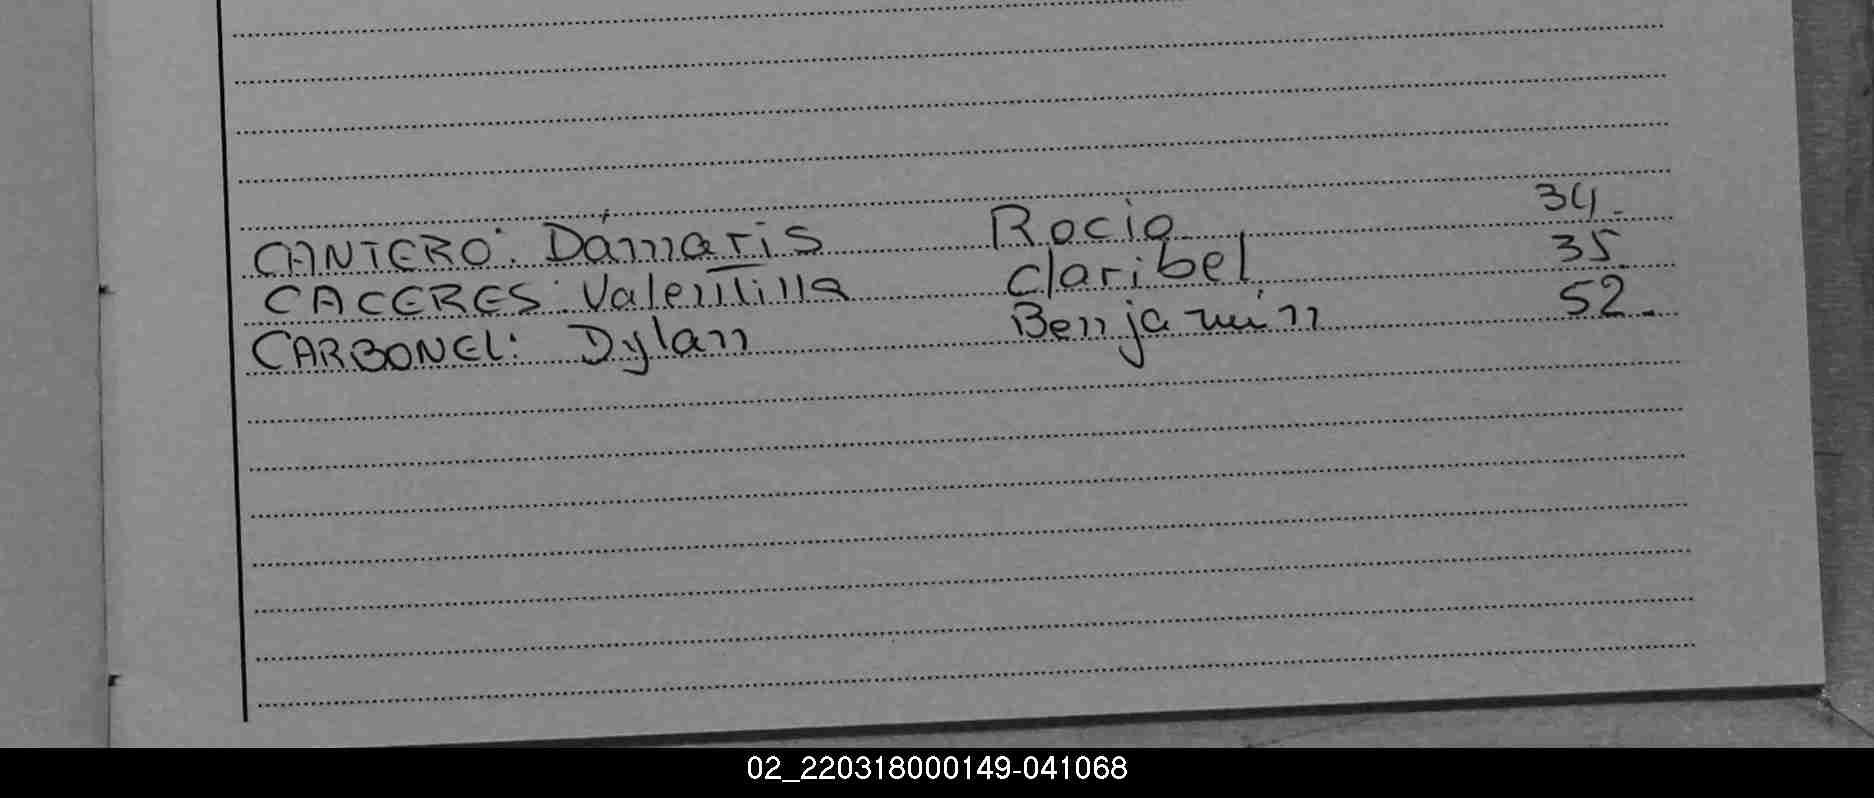 CANTERO: Dámaris Rocio 34.
CACERES: Valentina Claribel 35.
CARBONEL: Dylan Benjamín 52.
02_220318000149-041068